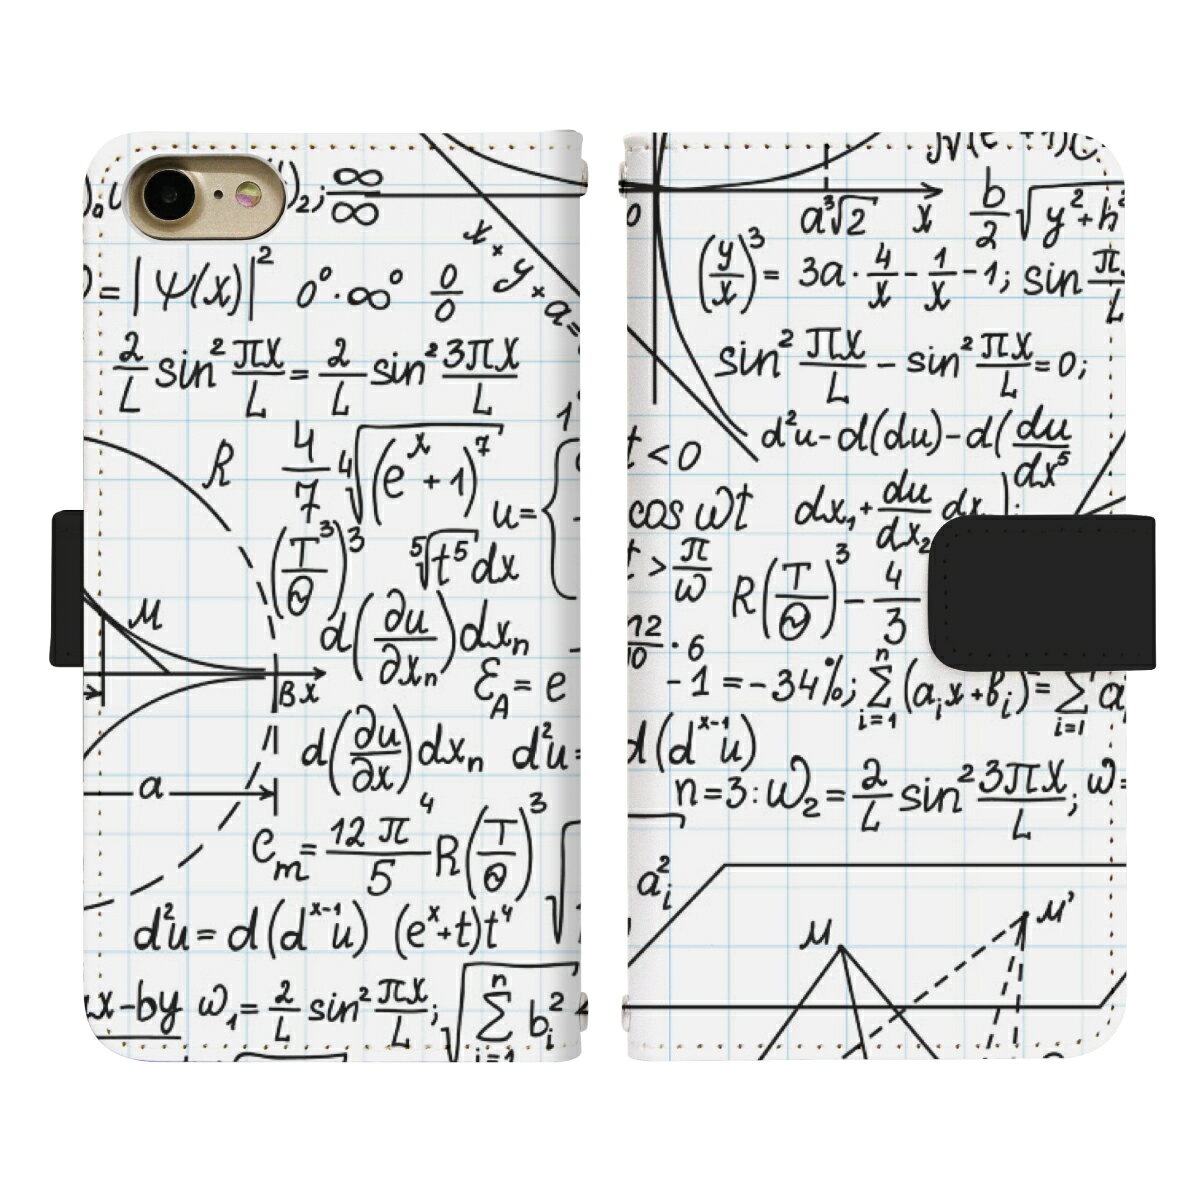 )₂; ∞/∞
= |ψ(x)|² 0⁰·∞⁰ 0/0
x × y × a =
2/L sin² πx/L = 2/L sin² 3πx/L
R 4/7 ⁴√(eˣ + 1)⁷
u = {
(T³/Θ)³ ⁵√t⁵ dx
d(∂u/∂xₙ)dxₙ
μ
ℰ_A = e
B x
d(∂u/∂x)dxₙ d²u=
a
e_m = 12π⁴/5 R(T/Θ)³
d²u = d(dˣ⁻¹u) (eˣ+t)t⁴
x-by ω₁ = 2/L sin² πx/L; √ n∑i=1 bᵢ²
0 a³√2 x b/2 √y²+h²
(y/x)³ = 3a · 4/x - 1/x - 1; sin π/L
sin² πx/L - sin² πx/L = 0;
t < 0 d²u - d(du) - d(du/dx⁵
cos ωt dx₁ + du/dx₂ dx );
t > π/ω R(T/Θ)³ - 4/3
12/10 · 6
-1 = -34%; n∑i=1 (aᵢx + bᵢ) = ∑i=1 a
d(dˣ⁻¹u)
n=3: ω₂ = 2/L sin² 3πx/L; ω=
aᵢ²
μ μ'